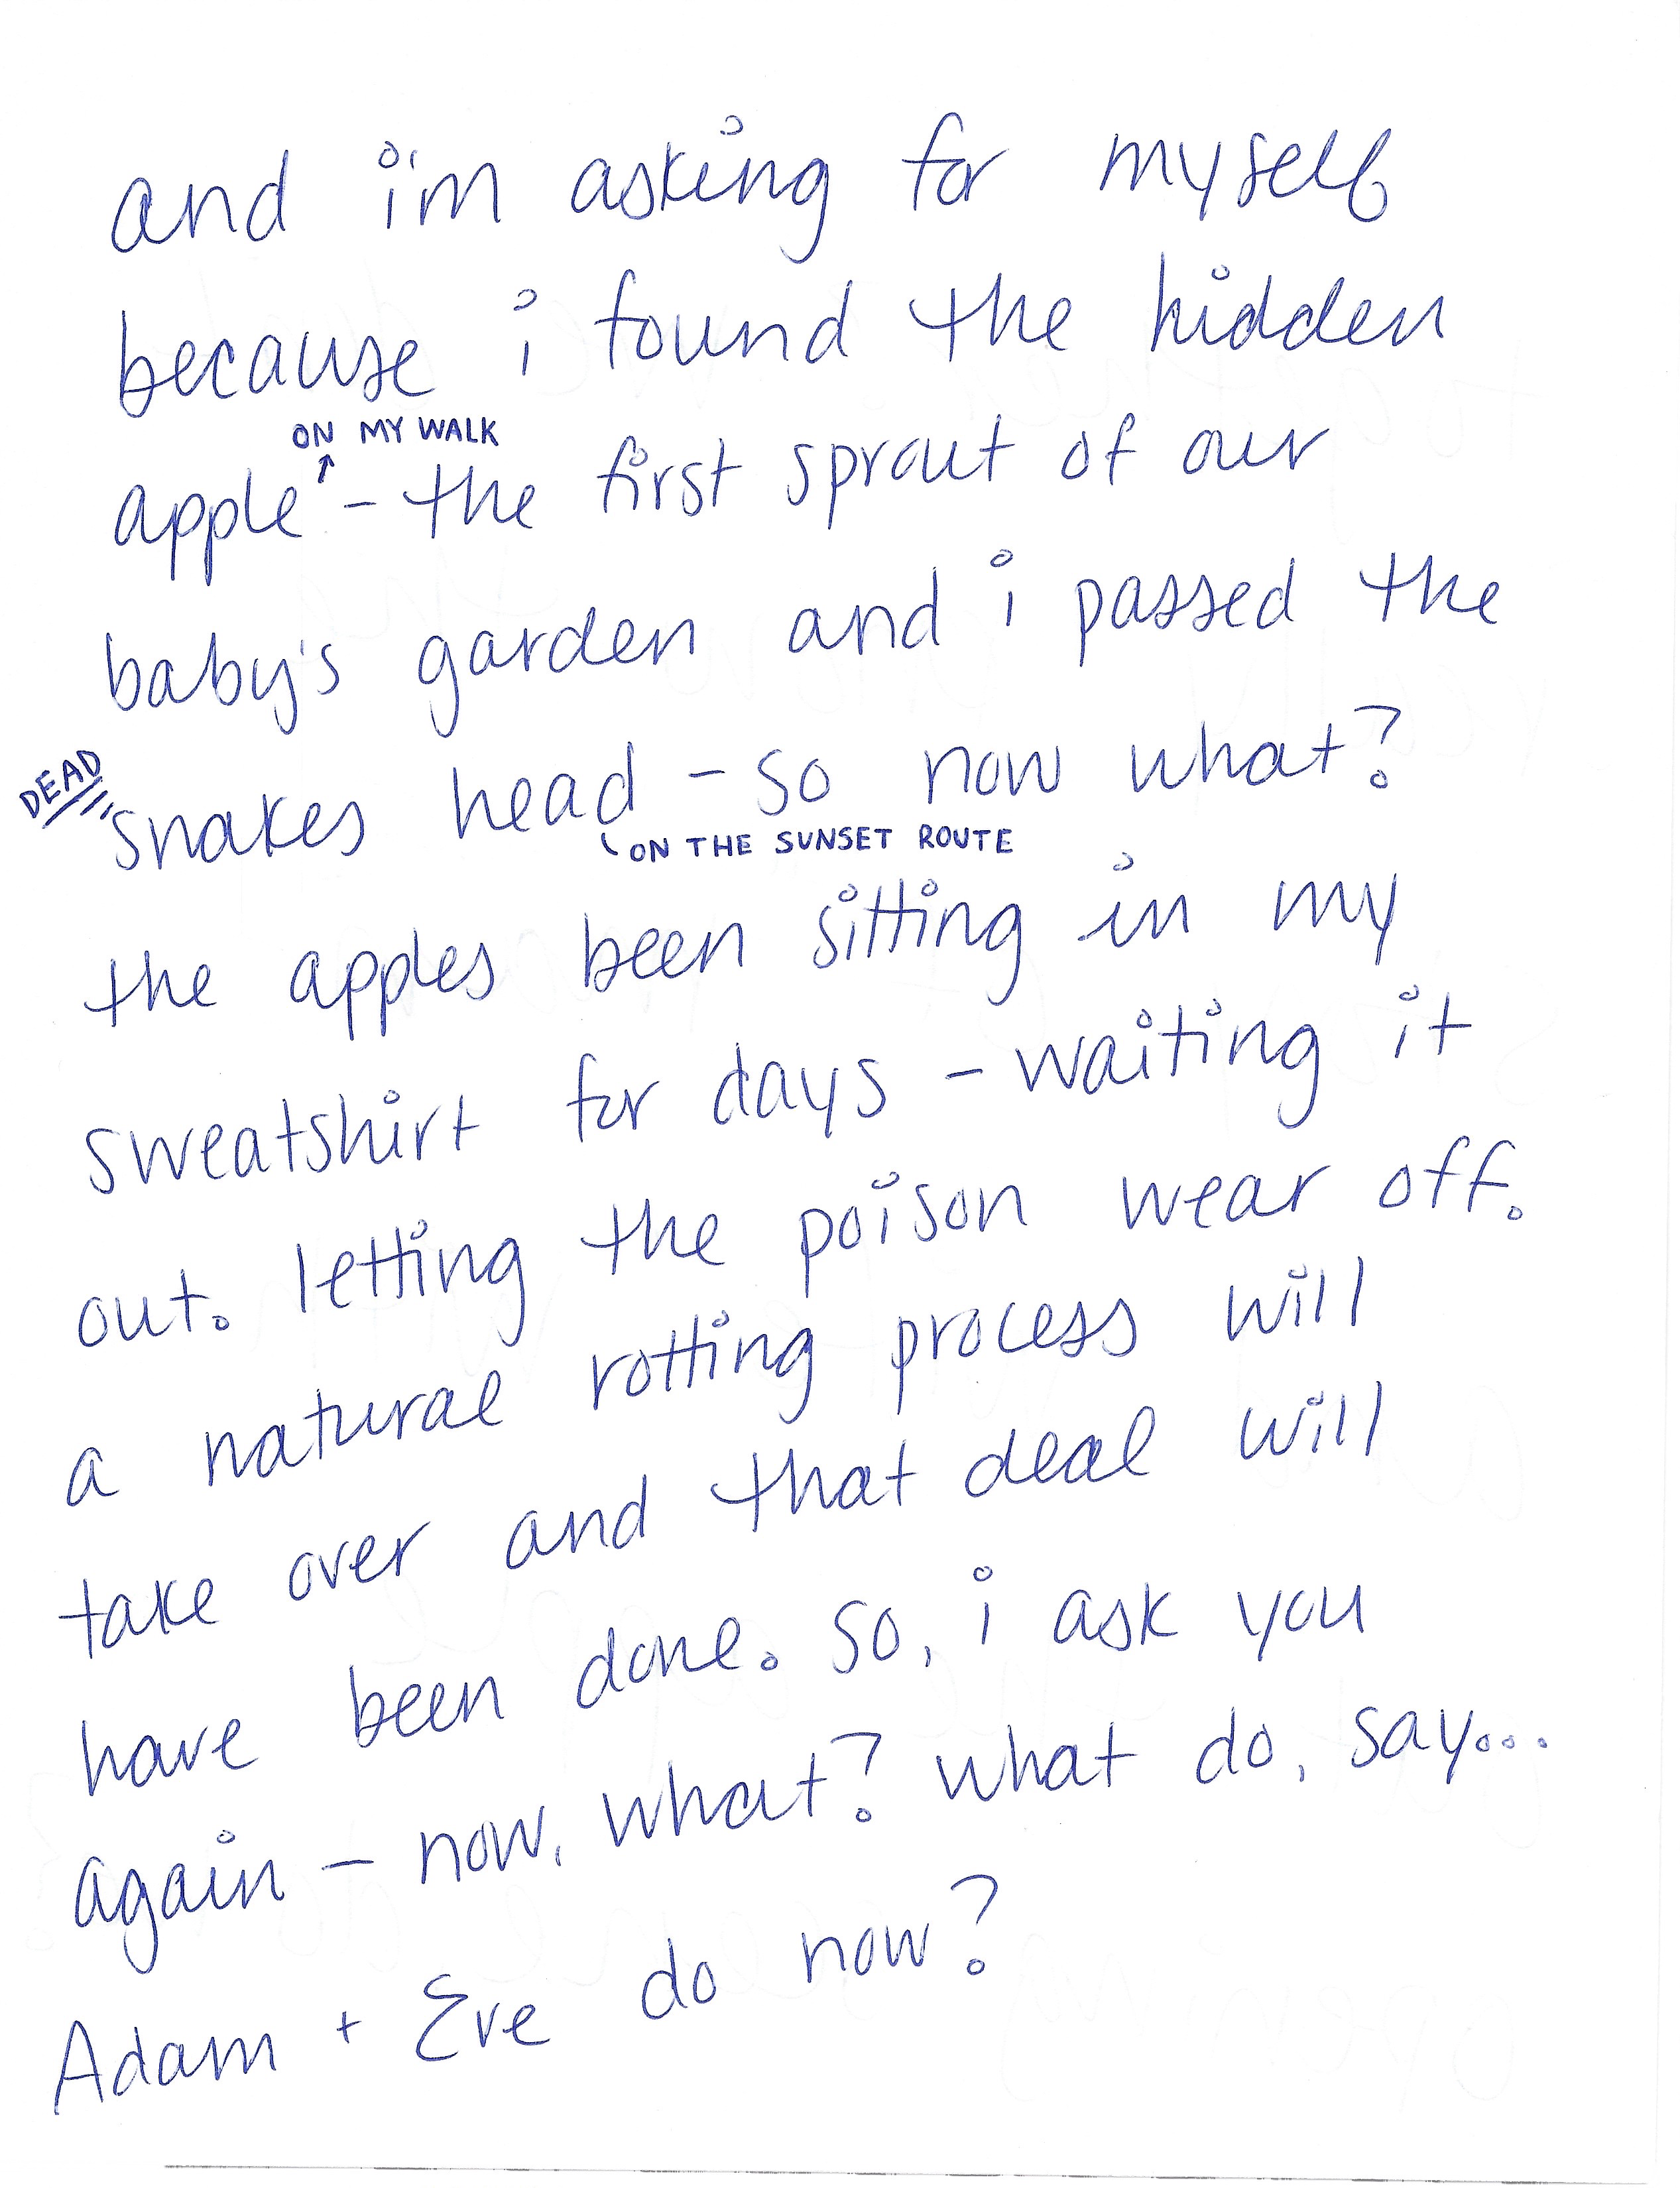 and i'm asking for myself
because i found the hidden
ON MY WALK
apple - the first sprout of our
baby's garden and i passed the
DEAD
snakes head - so now what?
ON THE SUNSET ROUTE
the apples been sitting in my
sweatshirt for days - waiting it
out. letting the poison wear off.
a natural rotting process will
take over and that deal will
have been done. so, i ask you
again - now, what? what do, say...
Adam + Eve do now?